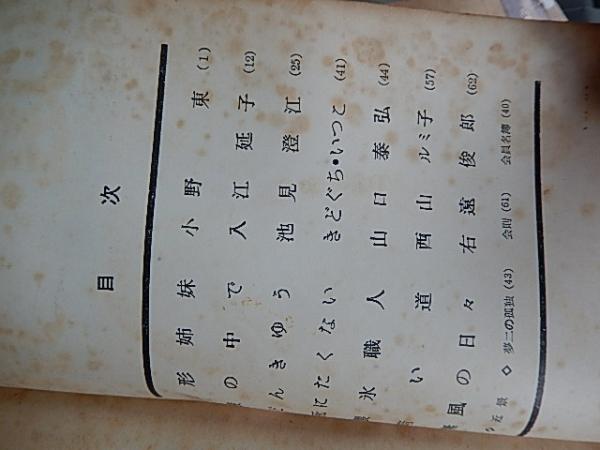 目次
形姉妹 小野 東 (1)
の中で 入江延子 (12)
んきゅう 池見澄江 (25)
にたくない きどぐち・いつこ (41)
氷職人 山日泰弘 (44)
い道 西山ルミ子 (57)
風の日々 右遠俊郎 (62)
近景 ◇ 夢二の孤独 (43) 会則 (61) 会員名簿 (40)